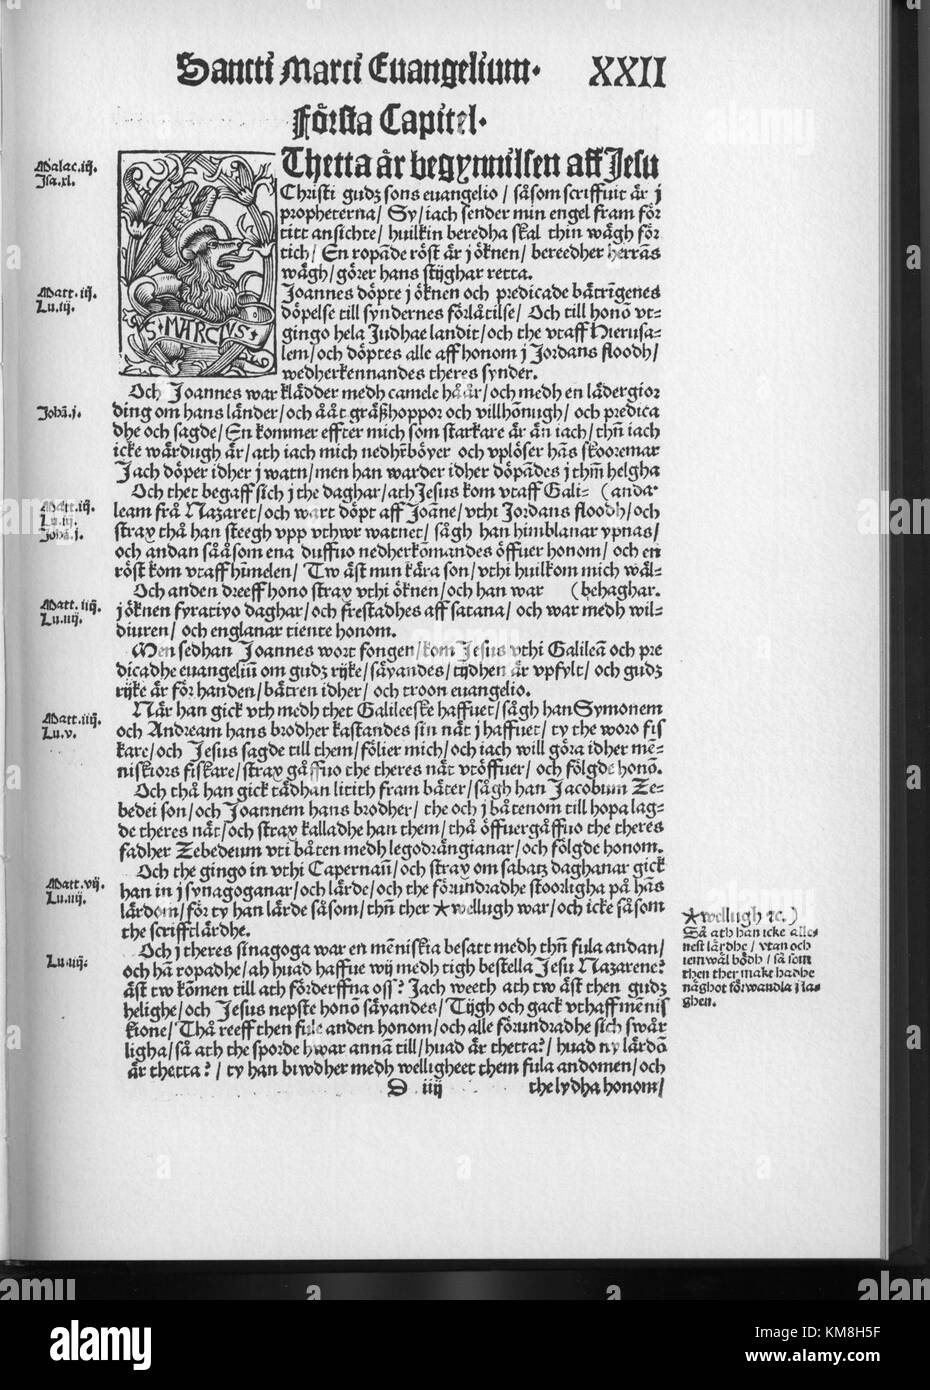 Sancti Marci Euangelium. XXII
Förſta Capitel.
Malac.iij.
Iſa.xl.
S MARCVS
Thetta är begynnilſen aff Jeſu
Chriſti gudz ſons euangelio / såſom ſcriffuit är j
propheterna / Sy / iach ſender min engel fram för
titt anſichte / huilkin beredha ſkal thin wägh för
tich / En ropãde röſt är j öknen / bereedher herrãs
wägh / görer hans ſtijghar retta.
Matt.iij.
Lu.iij.
Joannes döpte j öknen och predicade bätrĩgenes
döpelſe till ſyndernes förlåtilſe / Och till honõ vt-
gingo hela Judhae landit / och the vtaff Hieruſa-
lem / och döptes alle aff honom j Jordans floodh /
wedherkennandes theres ſynder.
Och Joannes war klädder medh camele håår / och medh en lädergior
Johã.j.
ding om hans länder / och åät gräßhoppor och villhõnugh / och predica
dhe och ſagde / En kommer effter mich ſom ſtarkare är än iach / thñ iach
icke wärdugh är / ath iach mich nedhrböyer och vplöſer hãs ſkooremar
Jach döper idher j watn / men han warder idher döpãdes j thm̃ helgha
Och thet begaff ſich j the daghar / ath Jeſus kom vtaff Gali- (andar
Matt.iij.
Lu.iij.
Johã.j.
leam frå Nazaret / och wart döpt aff Joãne / vthi Jordans floodh / och
ſtrax thå han ſteegh vpp vthwr watnet / ſågh han himblanar ypnas /
och andan såäſom ena duffuo nedherkõmandes öffuer honom / och en
röſt kom vtaff hm̃elen / Tw äſt min kära ſon / vthi huilkom mich wäl-
Och anden dreeff hono ſtrax vthi öknen / och han war (behaghar.
Matt.iiij.
Lu.iiij.
j öknen fyratiyo daghar / och freſtadhes aff ſatana / och war medh wil-
diuren / och englanar tiente honom.
Men ſedhan Joannes wort fongen / kom Jeſus vthi Galileã och pre
dicadhe euangeliũ om gudz rijke / ſäyandes / tijdhen är vpfylt / och gudz
rijke är för handen / bätren idher / och troon euangelio.
När han gick vth medh thet Galileeſke haffuet / ſågh han Symonem
Matt.iiij.
Lu.v.
och Andream hans brodher kaſtandes ſin nät j haffuet / ty the woro fiſ
kare / och Jeſus ſagde till them / fölier mich / och iach will göra idher mẽ-
niſkiors fiſkare / ſtrax gåffuo the theres nät vtöffuer / och fölgde honõ.
Och thå han gick tådhan litith fram bäter / ſågh han Jacobum Ze-
bedei ſon / och Joannem hans brodher / the och j båtenom till hopa lag-
de theres nät / och ſtrax kalladhe han them / thå öffuergåffuo the theres
fadher Zebedeum vti båten medh legodrängianar / och fölgde honom.
Och the gingo in vthi Capernaũ / och ſtrax om ſabatz daghanar gick
Matt.vij.
Lu.iiij.
han in j ſynagoganar / och lärde / och the förundradhe ſtoorligha på hãs
lärdom / för ty han lärde såſom / thñ ther ★wellugh war / och icke såſom
the ſcrifftlärdhe.
★wellugh ⁊c.)
Så ath han icke alle-
neſt lärdhe / vtan och
iemwäl bödh / så ſom
then ther makt hadhe
någhot förwandla j la-
ghen.
Och j theres ſinagoga war en mẽniſkia beſatt medh thñ fula andan /
Lu.iiij.
och hã ropadhe / ah huad haffue wij medh tigh beſtella Jeſu Nazarene?
äſt tw kõmen till ath förderffna oſſ? Jach weeth ath tw äſt then gudz
helighe / och Jesus nepſte honõ ſäyandes / Tijgh och gack vthaff mẽniſ
kione / Thå reeff then fule anden honom / och alle förundradhe ſich ſwår
ligha / så ath the ſporde hwar annã till / huad är thetta? / huad ny lärdõ
är thetta? / ty han biwdher medh welligheet them fula andomen / och
D iiij the lydha honom /
alamy
KM8H5F
www.alamy.com